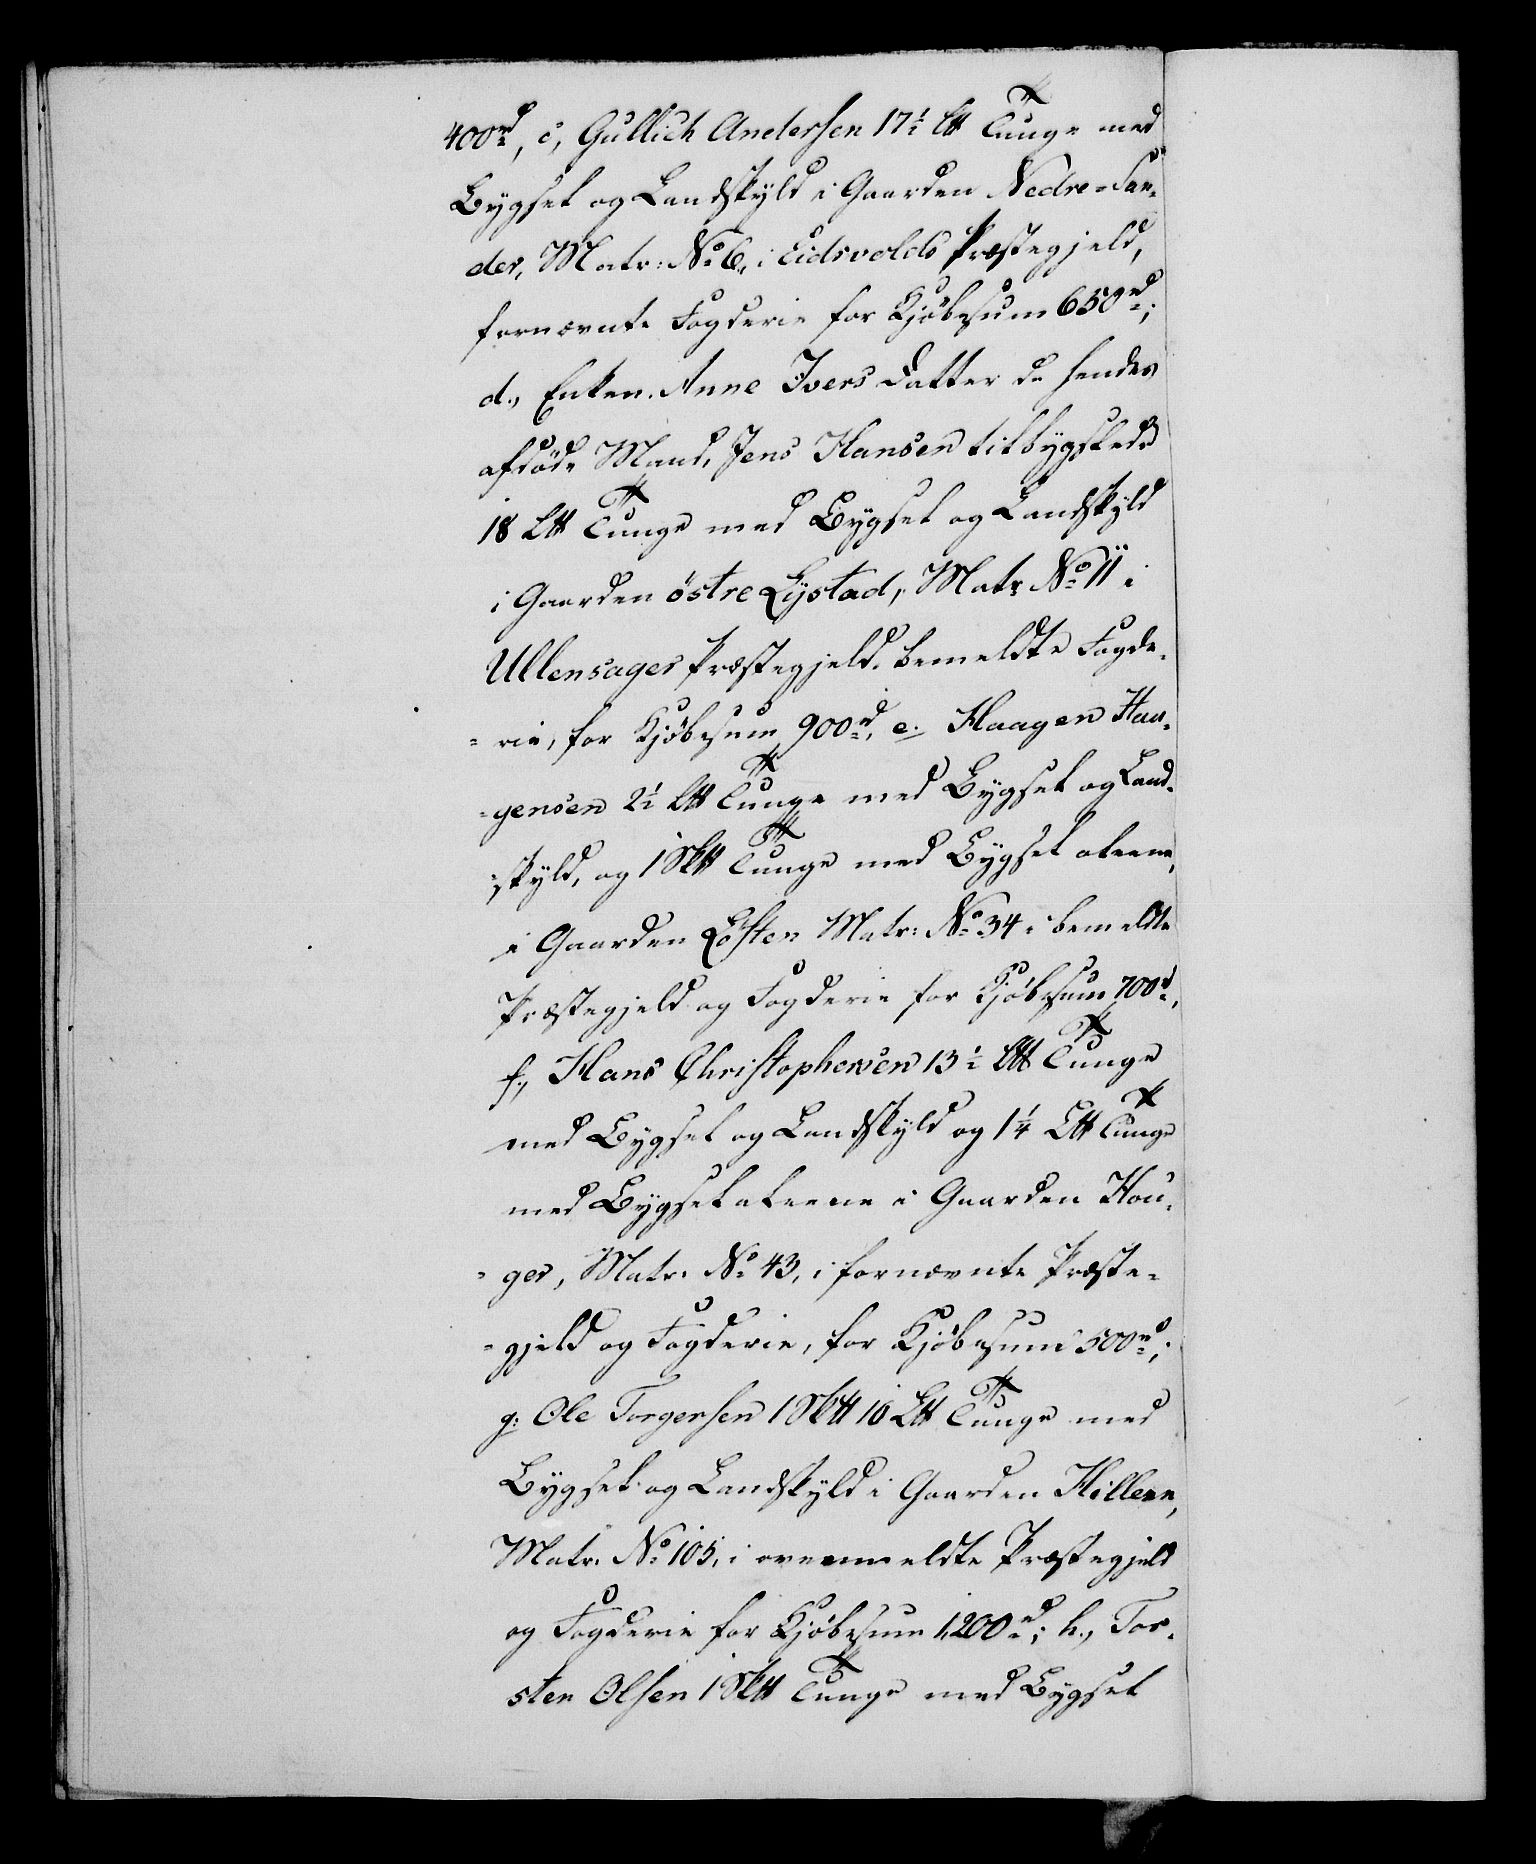 400 rd, c, Gullich Andersen 17½ L℔ Tunge med
Bygsel og Landskyld i Gaarden Nedre=San-
der, Matr: No 6, i Eidsvolds Præstegjeld,
fornævnte Fogderie for Kjöbesum 650 rd;
d., Enken Anne Ivers Datter de hendes
afdöde Mand, Jens Hansen tilbygslede
18 L℔ Tunge med Bygsel og Landskyld
i Gaarden östre Lÿstad, Matr No 11 i
Ullensager Præstegjeld bemeldte Fogde-
=rie, for Kjöbesum 900 rd, e. Haagen Haa-
=gensen 2½ L℔ Tunge med Bygsel og Land-
skyld, og 1 Sk℔ Tunge med Bygsel alene,
i Gaarden Löken Matr: No 34 i bemeldte
Præstegjeld og Fogderie for Kjöbesum 700 rd,
f., Hans Christophersen 13½ L℔ Tunge
med Bygsel og Landskyld og 1¼ L℔ Tunge
med Bygsel alene i Gaarden Hou-
=ger, Matr. No 43, i fornævnte Præste-
=gjeld og Fogderie, for Kjöbesum 500 rd;
g: Ole Torgersen 1 Sk℔ 10 L℔ Tunge med
Bygsel og Landskyld i Gaarden Hilleren,
Matr. No 105, i ovenmeldte Præstegjeld
og Fogderie for Kjöbesum 1200 rd; h., Tor-
sten Olsen 1 Sk℔ Tunge med Bygsel